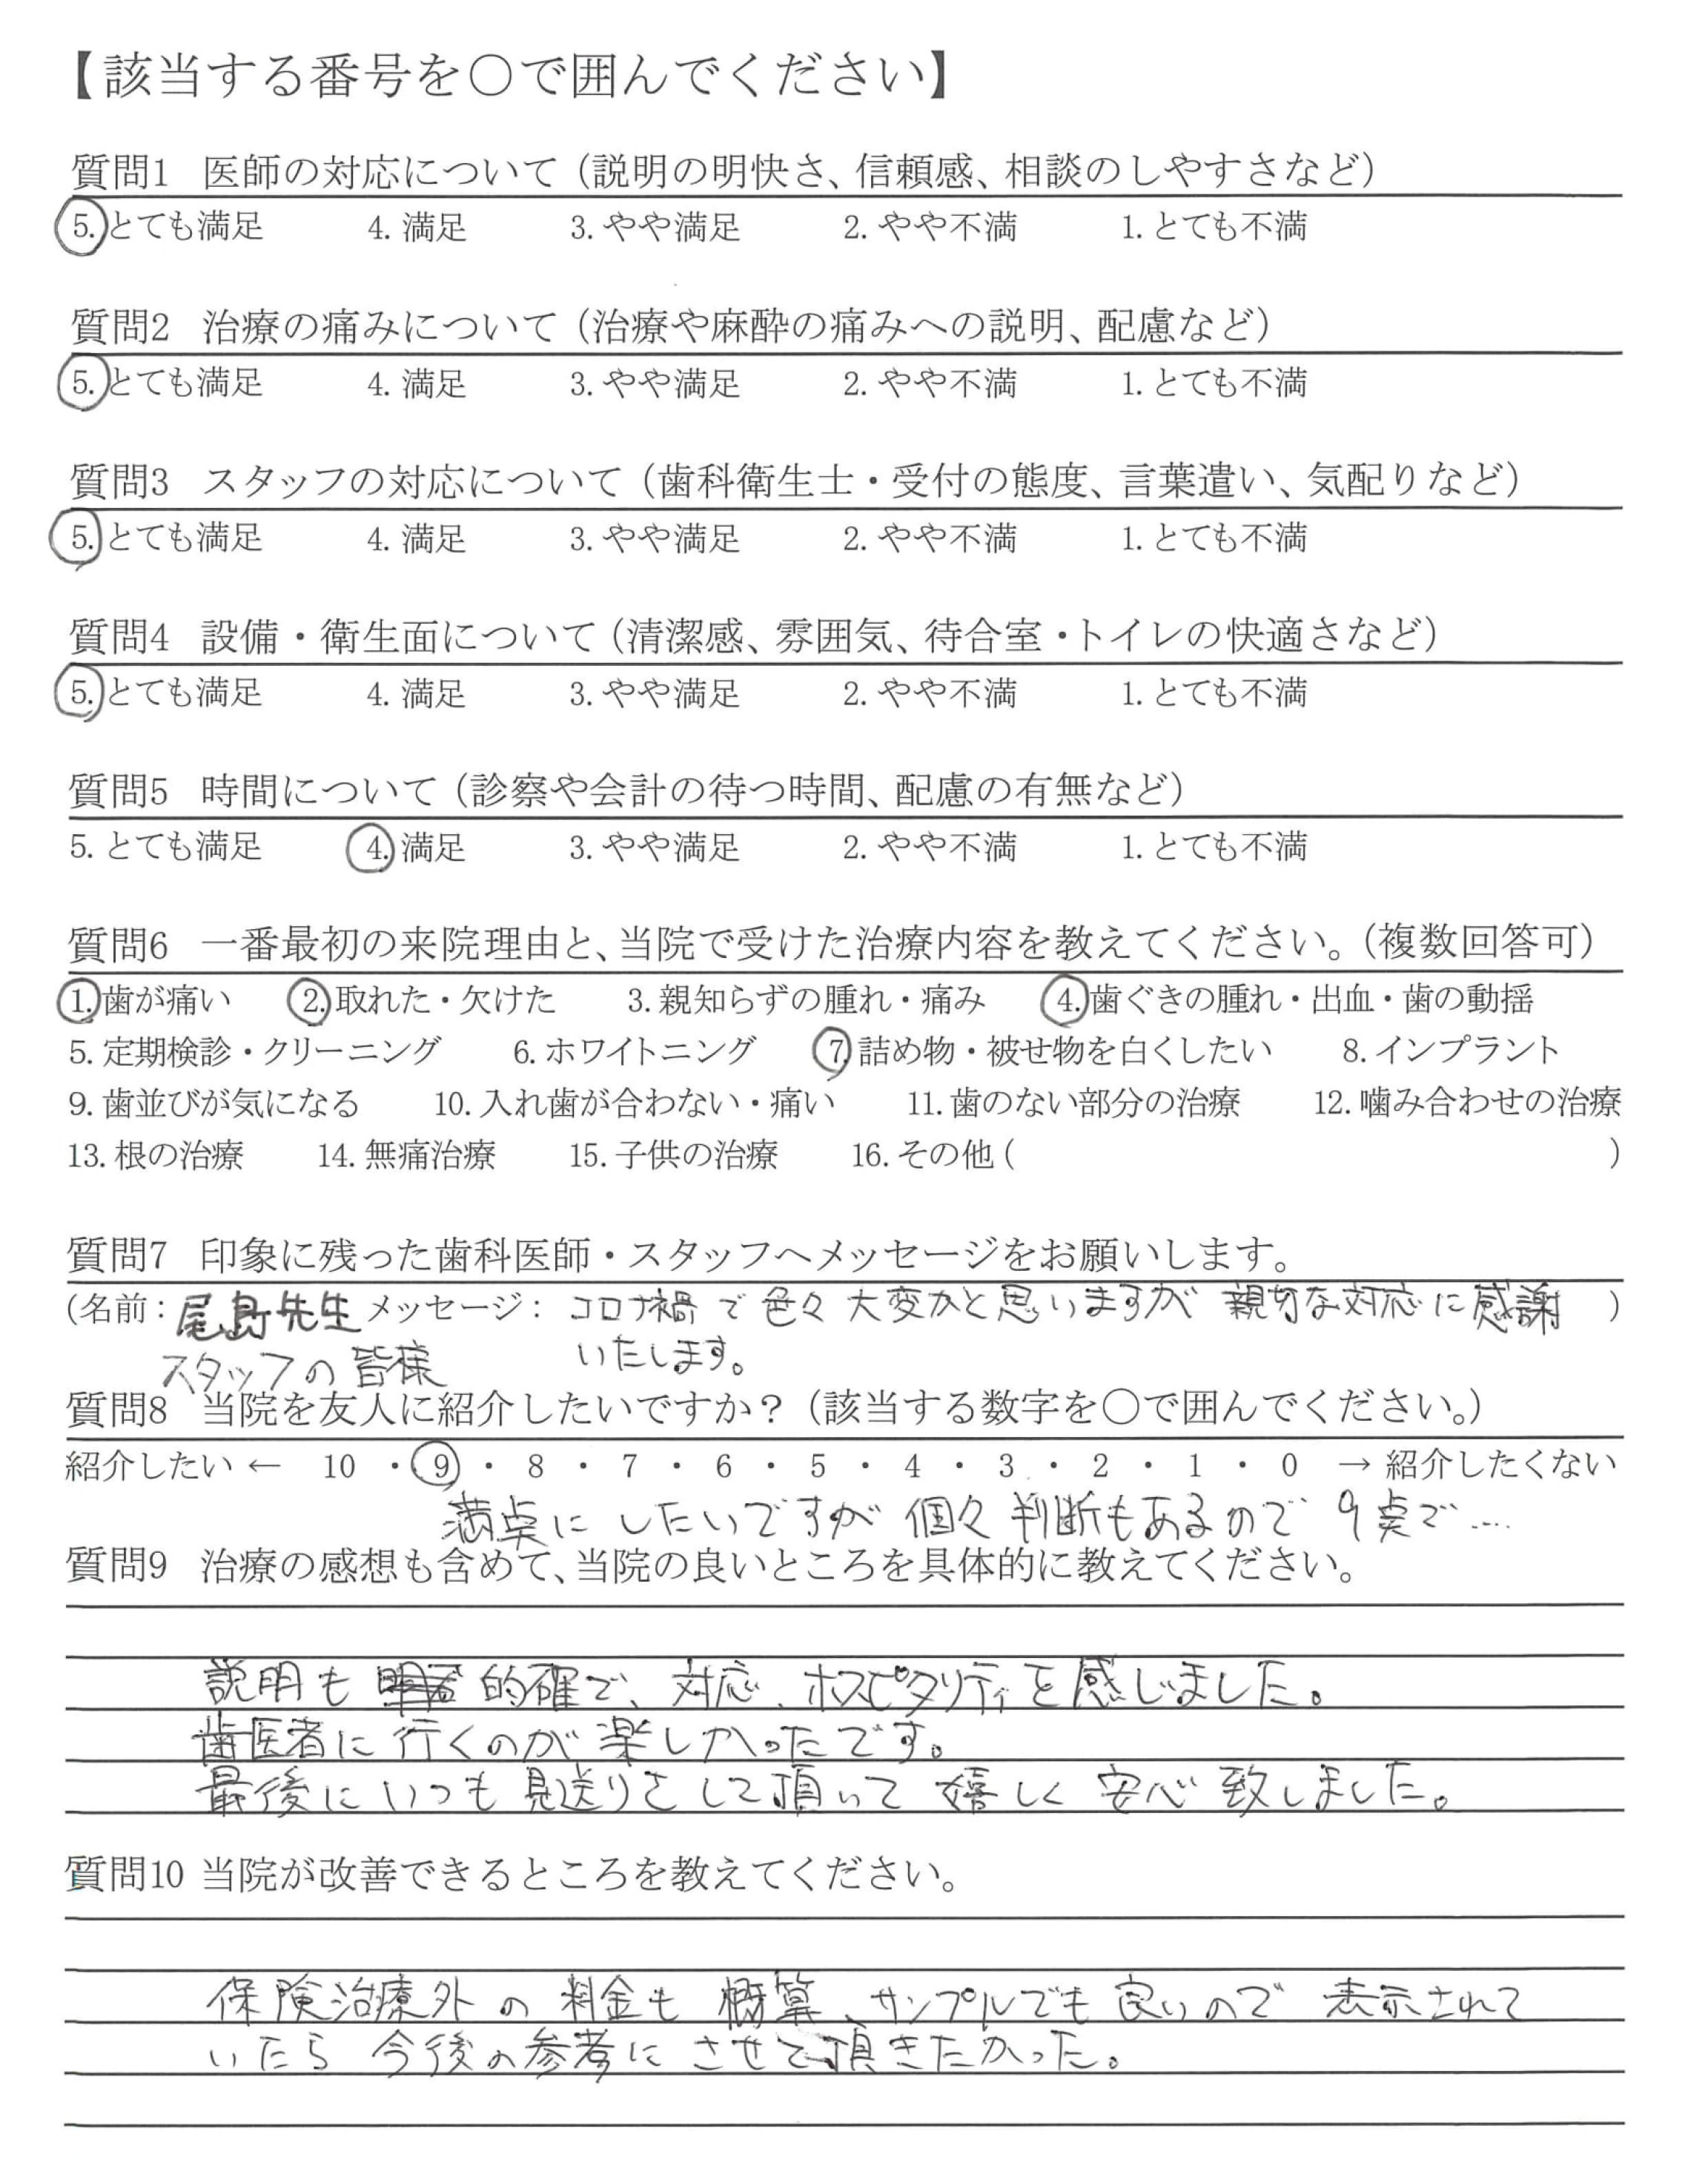 【該当する番号を〇で囲んでください】
質問1 医師の対応について（説明の明快さ、信頼感、相談のしやすさなど）
5. とても満足 4. 満足 3. やや満足 2. やや不満 1. とても不満
質問2 治療の痛みについて（治療や麻酔の痛みへの説明、配慮など）
5. とても満足 4. 満足 3. やや満足 2. やや不満 1. とても不満
質問3 スタッフの対応について（歯科衛生士・受付の態度、言葉遣い、気配りなど）
5. とても満足 4. 満足 3. やや満足 2. やや不満 1. とても不満
質問4 設備・衛生面について（清潔感、雰囲気、待合室・トイレの快適さなど）
5. とても満足 4. 満足 3. やや満足 2. やや不満 1. とても不満
質問5 時間について（診察や会計の待つ時間、配慮の有無など）
5. とても満足 4. 満足 3. やや満足 2. やや不満 1. とても不満
質問6 一番最初の来院理由と、当院で受けた治療内容を教えてください。（複数回答可）
1. 歯が痛い 2. 取れた・欠けた 3. 親知らずの腫れ・痛み 4. 歯ぐきの腫れ・出血・歯の動揺
5. 定期検診・クリーニング 6. ホワイトニング 7. 詰め物・被せ物を白くしたい 8. インプラント
9. 歯並びが気になる 10. 入れ歯が合わない・痛い 11. 歯のない部分の治療 12. 噛み合わせの治療
13. 根の治療 14. 無痛治療 15. 子供の治療 16. その他（ ）
質問7 印象に残った歯科医師・スタッフへメッセージをお願いします。
（名前：尾島先生 メッセージ： コロナ禍で色々大変かと思いますが 親切な対応に感謝 ）
スタッフの皆様 いたします。
質問8 当院を友人に紹介したいですか？（該当する数字を〇で囲んでください。）
紹介したい ← 10 ・ 9 ・ 8 ・ 7 ・ 6 ・ 5 ・ 4 ・ 3 ・ 2 ・ 1 ・ 0 → 紹介したくない
満点にしたいですが 個々判断もあるので 9点で….
質問9 治療の感想も含めて、当院の良いところを具体的に教えてください。
説明も 的確で、対応、ホスピタリティを感じました。
歯医者に行くのが楽しかったです。
最後にいつも見送りをして頂いて 嬉しく 安心致しました。
質問10 当院が改善できるところを教えてください。
保険治療外の料金も 概算、サンプルでも良いので 表示されて
いたら 今後の参考にさせて頂きたかった。